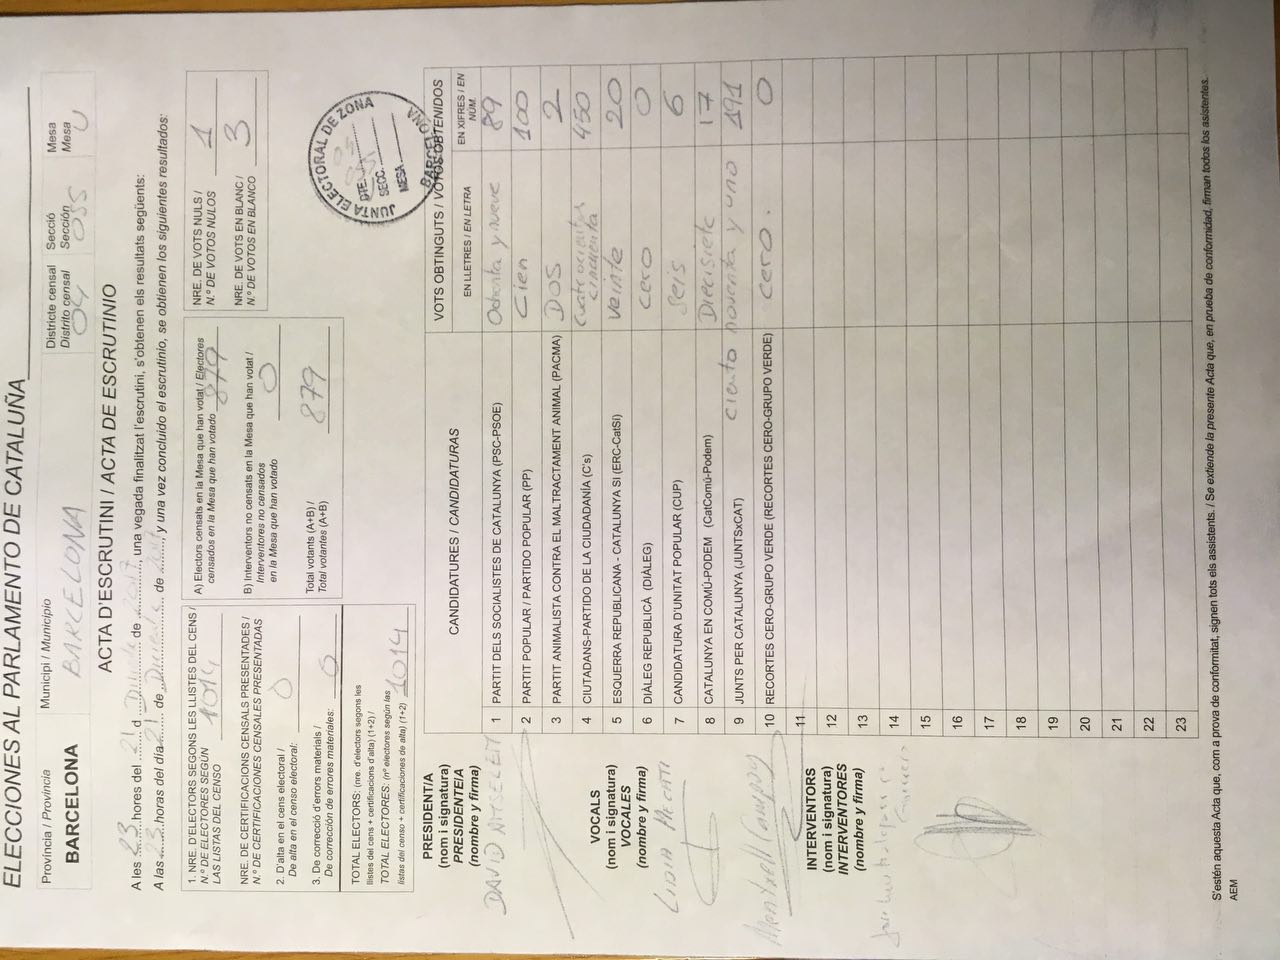 ELECCIONES AL PARLAMENTO DE CATALUÑA
Província / Provincia
BARCELONA
Municipi / Municipio
BARCELONA
Districte censal
Distrito censal
04
Secció
Sección
055
Mesa
Mesa
U
ACTA D'ESCRUTINI / ACTA DE ESCRUTINIO
A les 23 hores del 21 d de , una vegada finalitzat l'escrutini, s'obtenen els resultats següents:
A las 23 horas del día 21 de Diciembre de , y una vez concluido el escrutinio, se obtienen los siguientes resultados:
1. NRE. D'ELECTORS SEGONS LES LLISTES DEL CENS /
N.º DE ELECTORES SEGÚN
LAS LISTAS DEL CENSO 1014
NRE. DE CERTIFICACIONS CENSALS PRESENTADES /
N.º DE CERTIFICACIONES CENSALES PRESENTADAS
2. D'alta en el cens electoral /
De alta en el censo electoral: 0
3. De correcció d'errors materials /
De corrección de errores materiales: 0
TOTAL ELECTORS: (nre. d'electors segons les
llistes del cens + certificacions d'alta) (1+2) /
TOTAL ELECTORES: (nº electores según las
listas del censo + certificaciones de alta) (1+2) 1014
A) Electors censats en la Mesa que han votat / Electores
censados en la Mesa que han votado 879
B) Interventors no censats en la Mesa que han votat /
Interventores no censados
en la Mesa que han votado 0
Total votants (A+B) /
Total votantes (A+B) 879
NRE. DE VOTS NULS /
N.º DE VOTOS NULOS 1
NRE. DE VOTS EN BLANC /
N.º DE VOTOS EN BLANCO 3
JUNTA ELECTORAL DE ZONA
DTE.
SECC.
MESA
BARCELONA
PRESIDENT/A
(nom i signatura)
PRESIDENTE/A
(nombre y firma)
DAVID
VOCALS
(nom i signatura)
VOCALES
(nombre y firma)
LIDIA
INTERVENTORS
(nom i signatura)
INTERVENTORES
(nombre y firma)
CANDIDATURES / CANDIDATURAS
VOTS OBTINGUTS / VOTOS OBTENIDOS
EN LLETRES / EN LETRA
EN XIFRES / EN NÚM.
1 PARTIT DELS SOCIALISTES DE CATALUNYA (PSC-PSOE) Ochenta y nueve 89
2 PARTIT POPULAR / PARTIDO POPULAR (PP) Cien 100
3 PARTIT ANIMALISTA CONTRA EL MALTRACTAMENT ANIMAL (PACMA) DOS 2
4 CIUTADANS-PARTIDO DE LA CIUDADANÍA (C's) Cuatrocientos cincuenta 450
5 ESQUERRA REPUBLICANA - CATALUNYA SI (ERC-CatSÍ) Veinte 20
6 DIÀLEG REPUBLICÀ (DIÀLEG) cero 0
7 CANDIDATURA D'UNITAT POPULAR (CUP) Seis 6
8 CATALUNYA EN COMÚ-PODEM (CatComú-Podem) Diecisiete 17
9 JUNTS PER CATALUNYA (JUNTSxCAT) ciento noventa y uno 191
10 RECORTES CERO-GRUPO VERDE (RECORTES CERO-GRUPO VERDE) cero. 0
11
12
13
14
15
16
17
18
19
20
21
22
23
S'estén aquesta Acta que, com a prova de conformitat, signen tots els assistents. / Se extiende la presente Acta que, en prueba de conformidad, firman todos los asistentes.
AEM